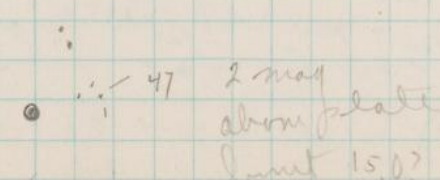 47 2 mag
above plate
limit 15.0?